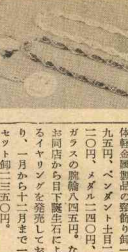 体軽金属製品の発飾り一
九五円、ペンダント土日二
二〇円、メダル二四〇円、
ガラスの腕輪八四五円。な
お同店から目下誕生石によ
るイヤリングを発売してお
り、一月から十二月まで一
セット卸二三五〇円。